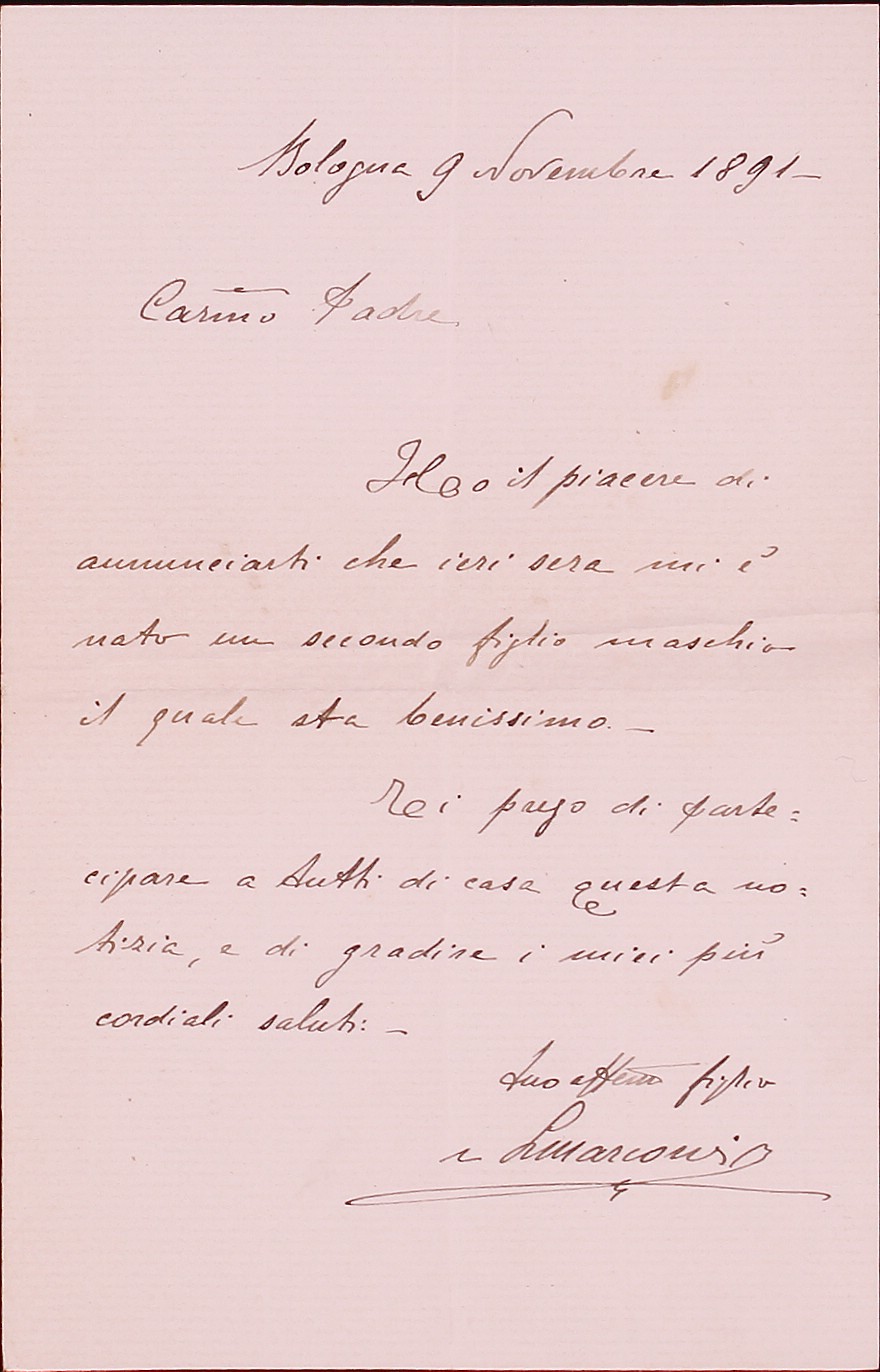 Bologna 9 Novembre 1891 —
Carmo Padre
Ho il piacere di
annunciarti che ieri sera mi è
nato un secondo figlio maschio
il quale sta benissimo. —
Ti prego di parte=
cipare a tutti di casa questa no=
tizia, e di gradire i miei più
cordiali saluti. —
Tuo affmo figlio
LMarconi